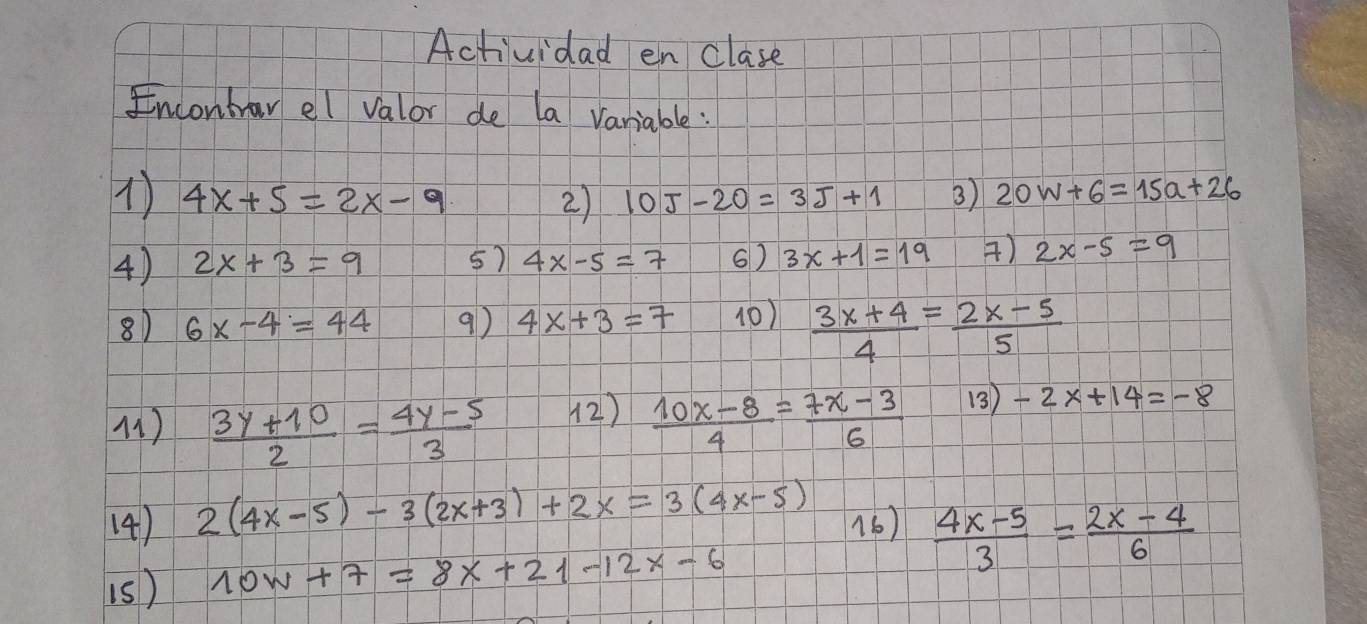 Actividad en Clase
Encontrar el valor de la variable:
1) 4x+5=2x-9 2) 10J-20=3J+1 3) 20w+6=15a+26
4) 2x+3=9 5) 4x-5=7 6) 3x+1=19 7) 2x-5=9
8) 6x-4=44 9) 4x+3=7 10) (3x+4)/4 = (2x-5)/5
11) (3y+10)/2 = (4y-5)/3 12) (10x-8)/4 = (7x-3)/6 13) -2x+14=-8
14) 2(4x-5)-3(2x+3)+2x=3(4x-5)
15) 10w+7=8x+21-12x-6 16) (4x-5)/3 = (2x-4)/6